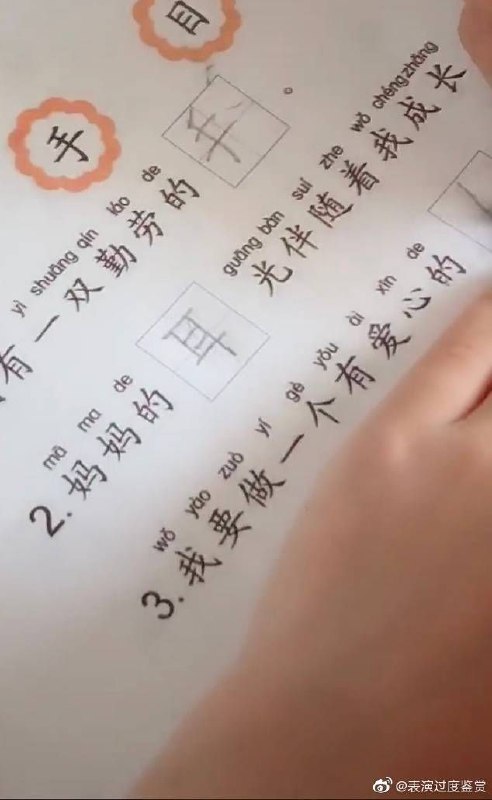 手 目
yì shuāng qín láo de
有一双勤劳的 手 。
mā ma de guāng bàn suí zhe wǒ chéngzhǎng
2. 妈妈的 耳 光伴随着我成长
wǒ yào zuò yí gè yǒu ài xīn de
3. 我要做一个有爱心的
@表演过度鉴赏